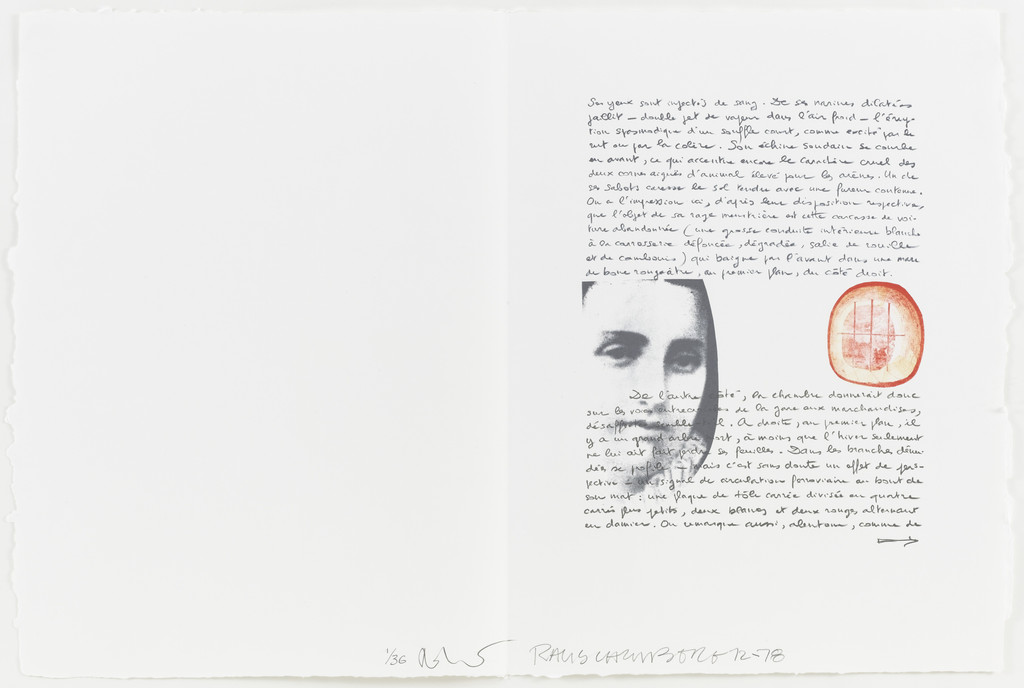 Ses yeux sont injectés de sang. De ses narines dilatées
jaillit – double jet de vapeur dans l'air froid – l'érup-
tion spasmodique d'un souffle court, comme excité par le
rut ou par la colère. Son échine soudain se courbe
en avant, ce qui accentue encore le caractère cruel des
deux cornes aiguës d'animal élevé pour les arènes. Un de
ses sabots caresse le sol tendre avec une fureur contenue.
On a l'impression ici, d'après leur disposition respective,
que l'objet de sa rage meurtrière est cette carcasse de voi-
ture abandonnée (une grosse conduite intérieure blanche
à la carrosserie défoncée, dégradée, salie de rouille
et de cambouis) qui baigne par l'avant dans une mare
de boue rougeâtre, au premier plan, du côté droit.
De l'autre côté, la chambre donnerait donc
sur les voies de la gare aux marchandises,
désaffectée A droite, au premier plan, il
y a un grand arbre mort, à moins que l'hiver seulement
ne lui ait fait perdre ses feuilles. Dans les branches dénu-
dées se profile – mais c'est sans doute un effet de pers-
pective – un signal de circulation ferroviaire au bout de
son mat : une plaque de tôle carrée divisée en quatre
carrés plus petits, deux blancs et deux rouges alternant
en damier. On remarque aussi, alentour, comme de
1/36 RAUSCHENBERG 78